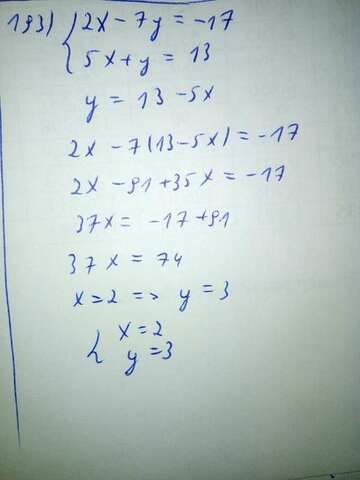 193) { 2x - 7y = -17
5x + y = 13
y = 13 - 5x
2x - 7(13 - 5x) = -17
2x - 91 + 35x = -17
37x = -17 + 91
37x = 74
x = 2 => y = 3
{ x = 2
y = 3